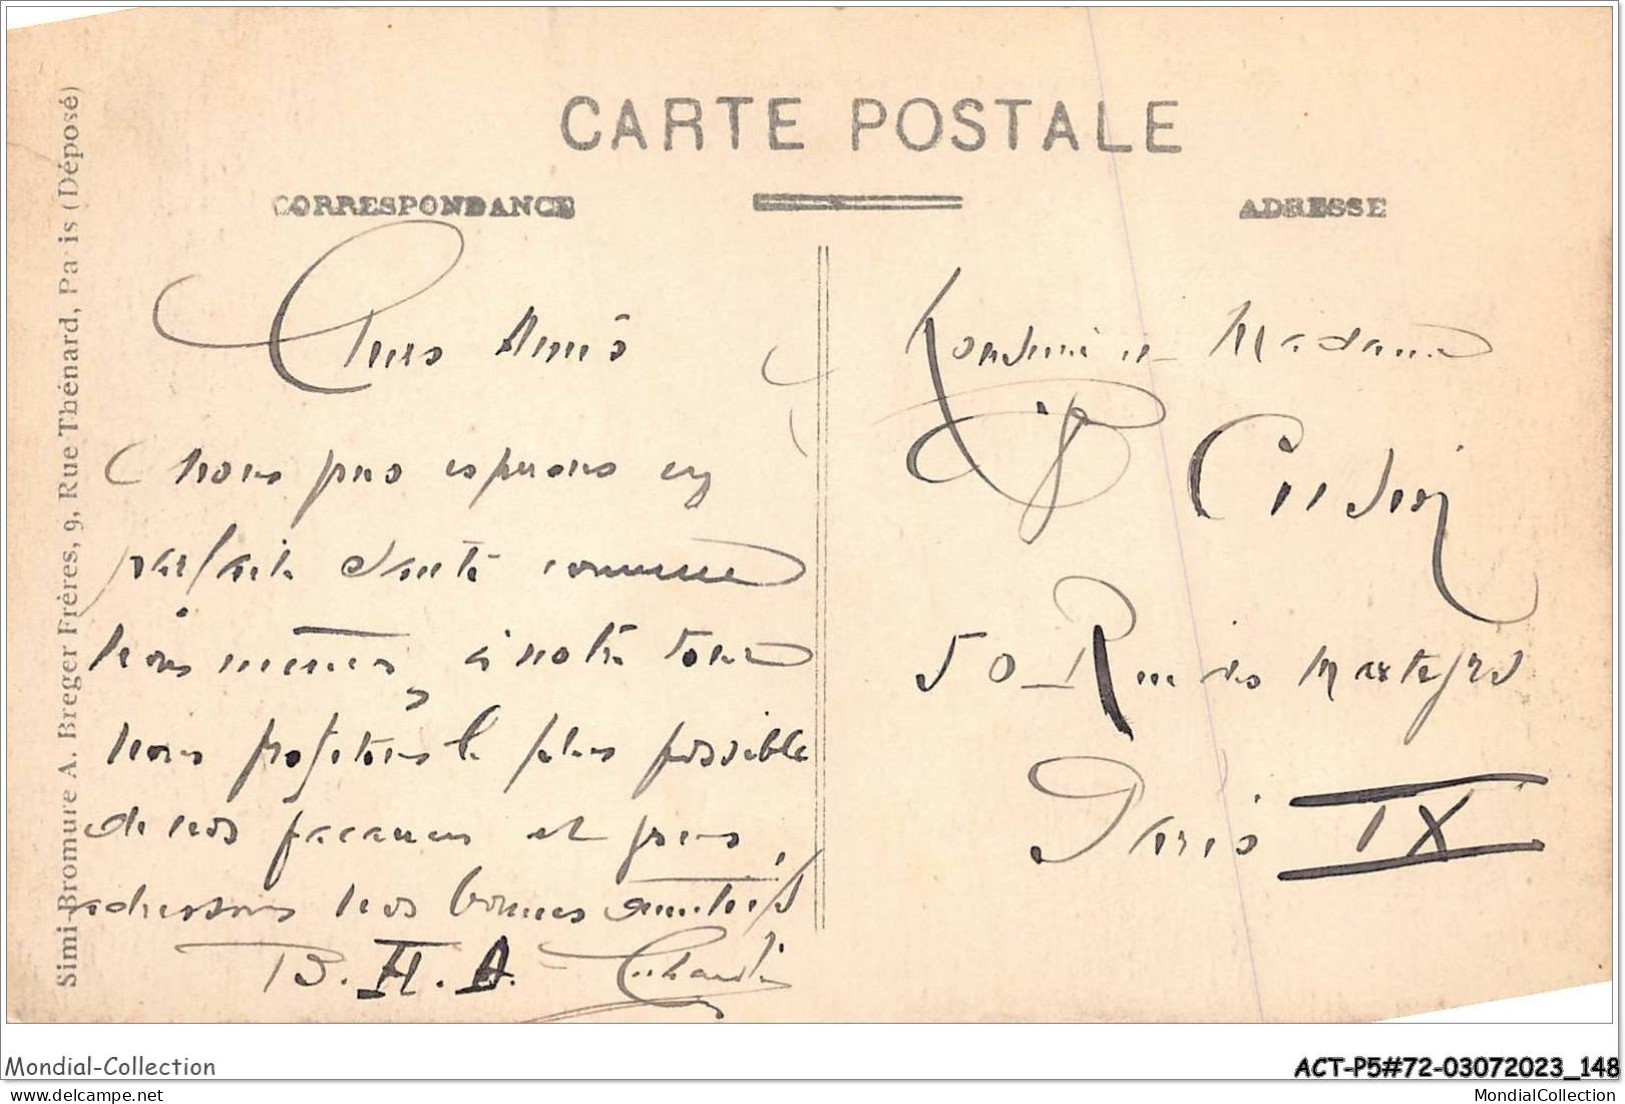 CARTE POSTALE
CORRESPONDANCE
ADRESSE
Simi-Bromure A. Breger Frères, 9, Rue Thénard, Paris (Déposé)
Chers Amis
nous vous espérons en
parfaite santé comme
nous mêmes, à notre tour
nous profitons le plus possible
de nos vacances et vous
adressons nos bonnes amitiés
B. H. A.
Monsieur et Madame
50 Rue des Martyrs
Paris IX
Mondial-Collection
ACT-P5#72-03072023_148
delcampe.net
MondialCollection